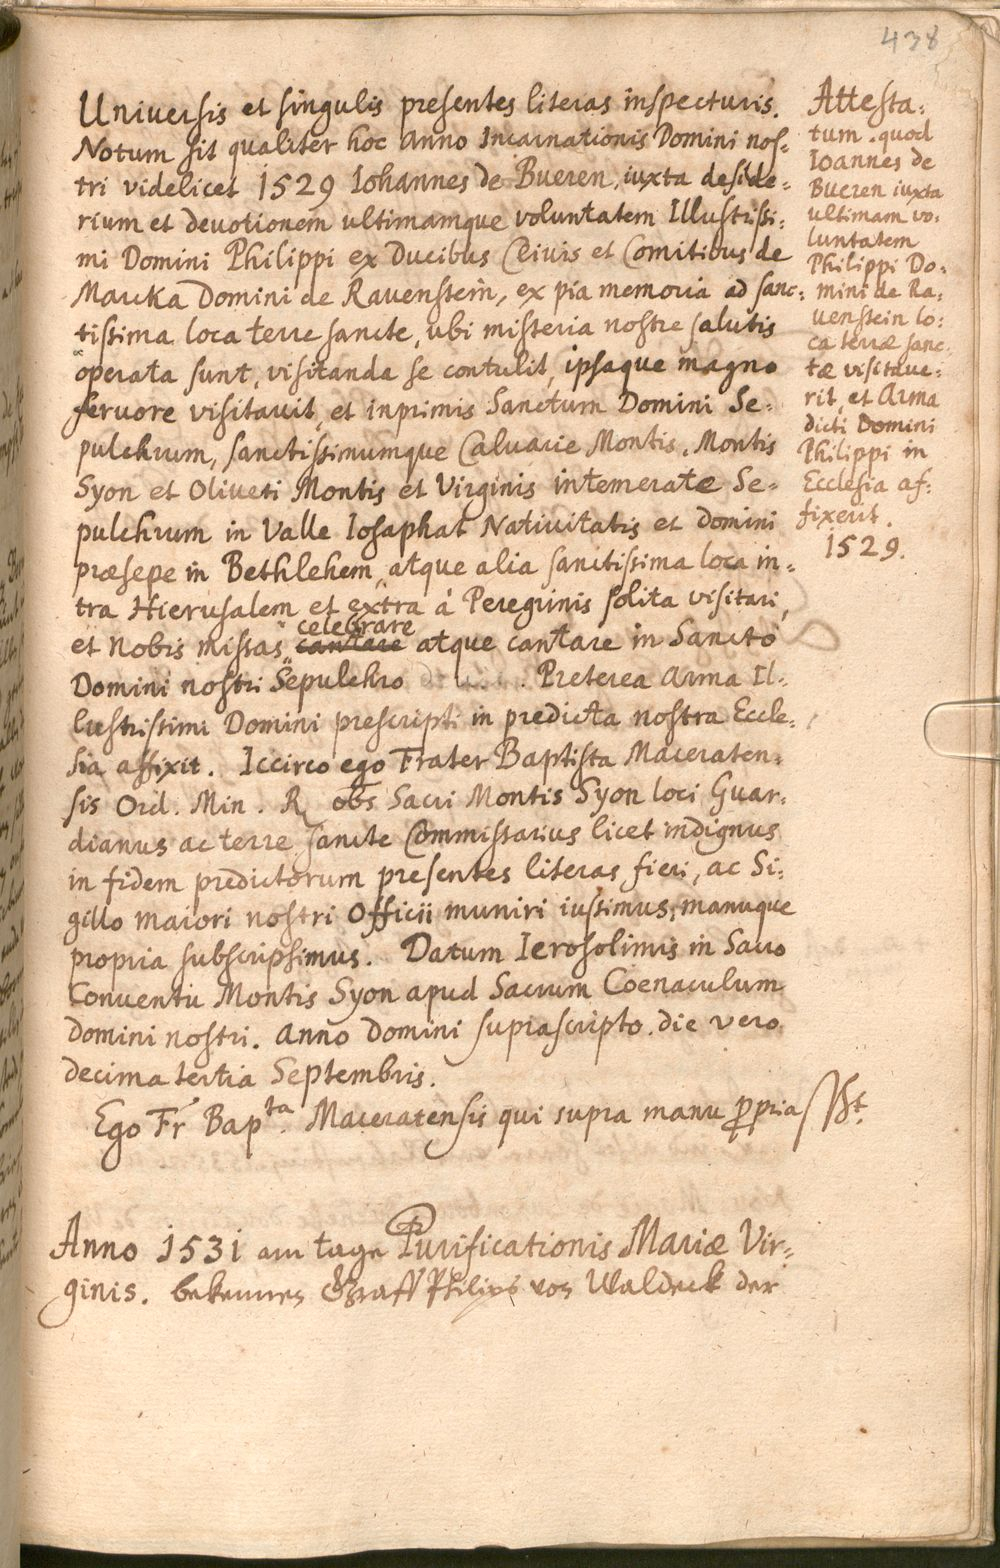 438
Universis et singulis presentes literas inspecturis.
Notum sit qualiter hoc anno Incarnationis Domini nos-
tri videlicet 1529 Iohannes de Bueren, iuxta deside-
rium et devotionem ultimamque voluntatem Illustrissi-
mi Domini Philippi ex Ducibus Clivis et Comitibus de
Marcka Domini de Ravenstein, ex pia memoria ad sanc-
tissima loca terre sancte, ubi misteria nostre salutis
operata sunt, visitanda se contulit, ipsaque magno
fervore visitavit, et inprimis Sanctum Domini Se-
pulchrum, sanctissimumque Calvarie Montis, Montis
Syon et Oliveti Montis et Virginis intemerate Se-
pulchrum in Valle Iosaphat Nativitatis et Domini
præsepe in Bethlehem, atque alia sanctissima loca in-
tra Hierusalem et extra á Peregrinis solita visitari,
et nobis missas cantare celebrare atque cantare in Sancto
Domini nostri Sepulchro Preterea Arma Il-
lustrissimi Domini prescripti in predicta nostra Eccle-
sia affixit. Iccirco ego Frater Baptista Maceraten-
sis Ord. Min. R obs Sacri Montis Syon loci Guar-
dianus ac terre sancte Commissarius licet indignus
in fidem predictorum presentes literas fieri, ac Si-
gillo maiori nostri Officii muniri iussimus, manuque
propria subscripsimus. Datum Ierosolimis in Sacro
Conventu Montis Syon apud Sacrum Coenaculum
Domini nostri. Anno Domini suprascripto. die vero
decima tertia Septembris.
Ego Fr Bapta. Maceratensis qui supra manu ppria sst.
Attesta-
tum quod
Ioannes de
Bueren iuxta
ultimam vo-
luntatem
Philippi Do-
mini de Ra-
venstein lo-
ca terræ sanc-
tæ visitave-
rit, et Arma
dicti Domini
Philippi in
Ecclesia af-
fixerit.
1529.
Anno 1531 am tage Purificationis Mariæ Vir-
ginis. bekennes Graff Philips von Waldeck der